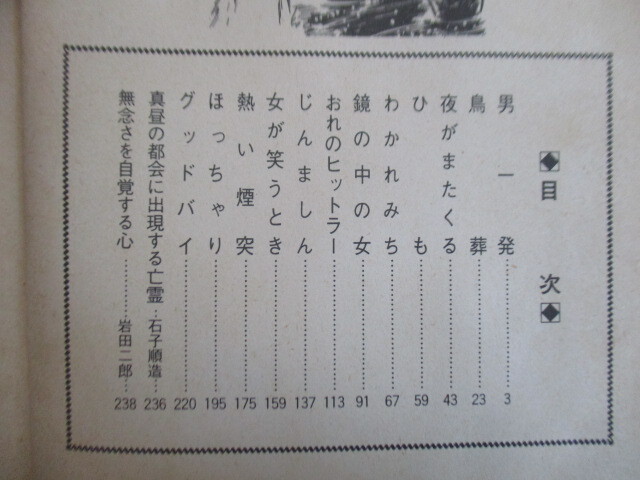 ◆目次◆
男一発 3
鳥葬 23
夜がまたくる 43
ひも 59
わかれみち 67
鏡の中の女 91
おれのヒットラー 113
じんましん 137
女が笑うとき 159
熱い煙突 175
ほっちゃり 195
グッドバイ 220
真昼の都会に出現する亡霊 石子順造 236
無念さを自覚する心 岩田二郎 238